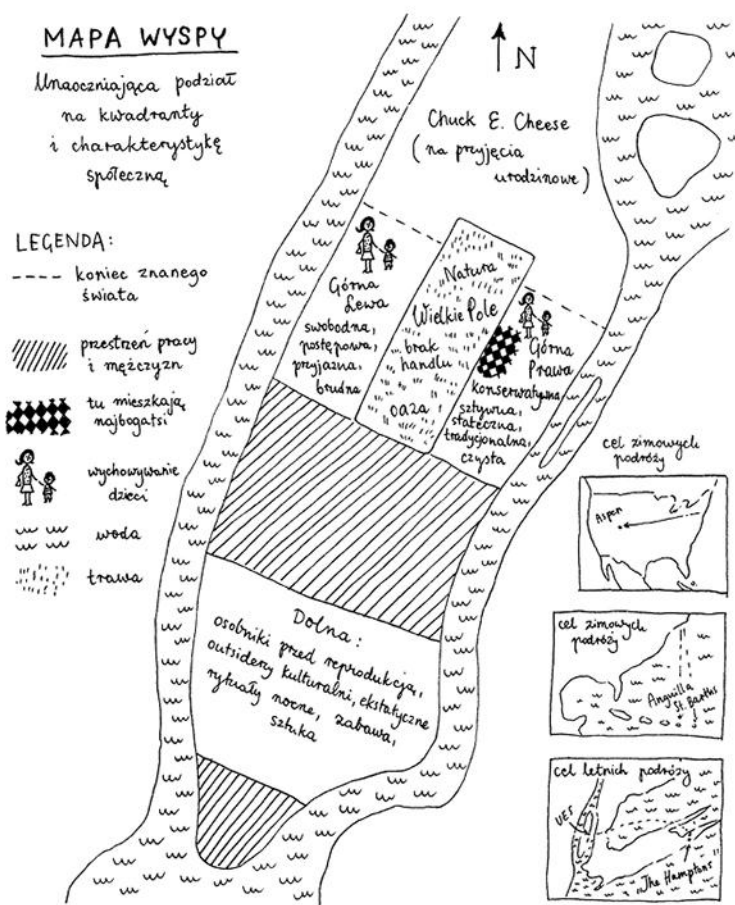 MAPA WYSPY
Unaoczniająca podział
na kwadranty
i charakterystykę
społeczną
N
Chuck E. Cheese
(na przyjęcia
urodzinowe)
LEGENDA:
koniec znanego
świata
przestrzeń pracy
i mężczyzn
tu mieszkają
najbogatsi
wychowywanie
dzieci
woda
trawa
Górna
Lewa
swobodna,
postępowa,
przyjazna,
brudna
Natura
Wielkie Pole
brak
handlu
oaza
Górna
Prawa
konserwatywna
sztywna,
stateczna,
tradycjonalna,
czysta
Dolna:
osobniki przed reprodukcją,
outsiderzy kulturalni, ekstatyczne
rytuały nocne, zabawa,
sztuka
cel zimowych
podróży
Aspen
cel zimowych
podróży
Anguilla
St. Barths
cel letnich podróży
UES
The Hamptons